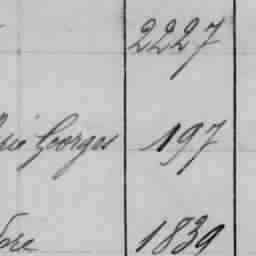 2227
Georges 197
1839